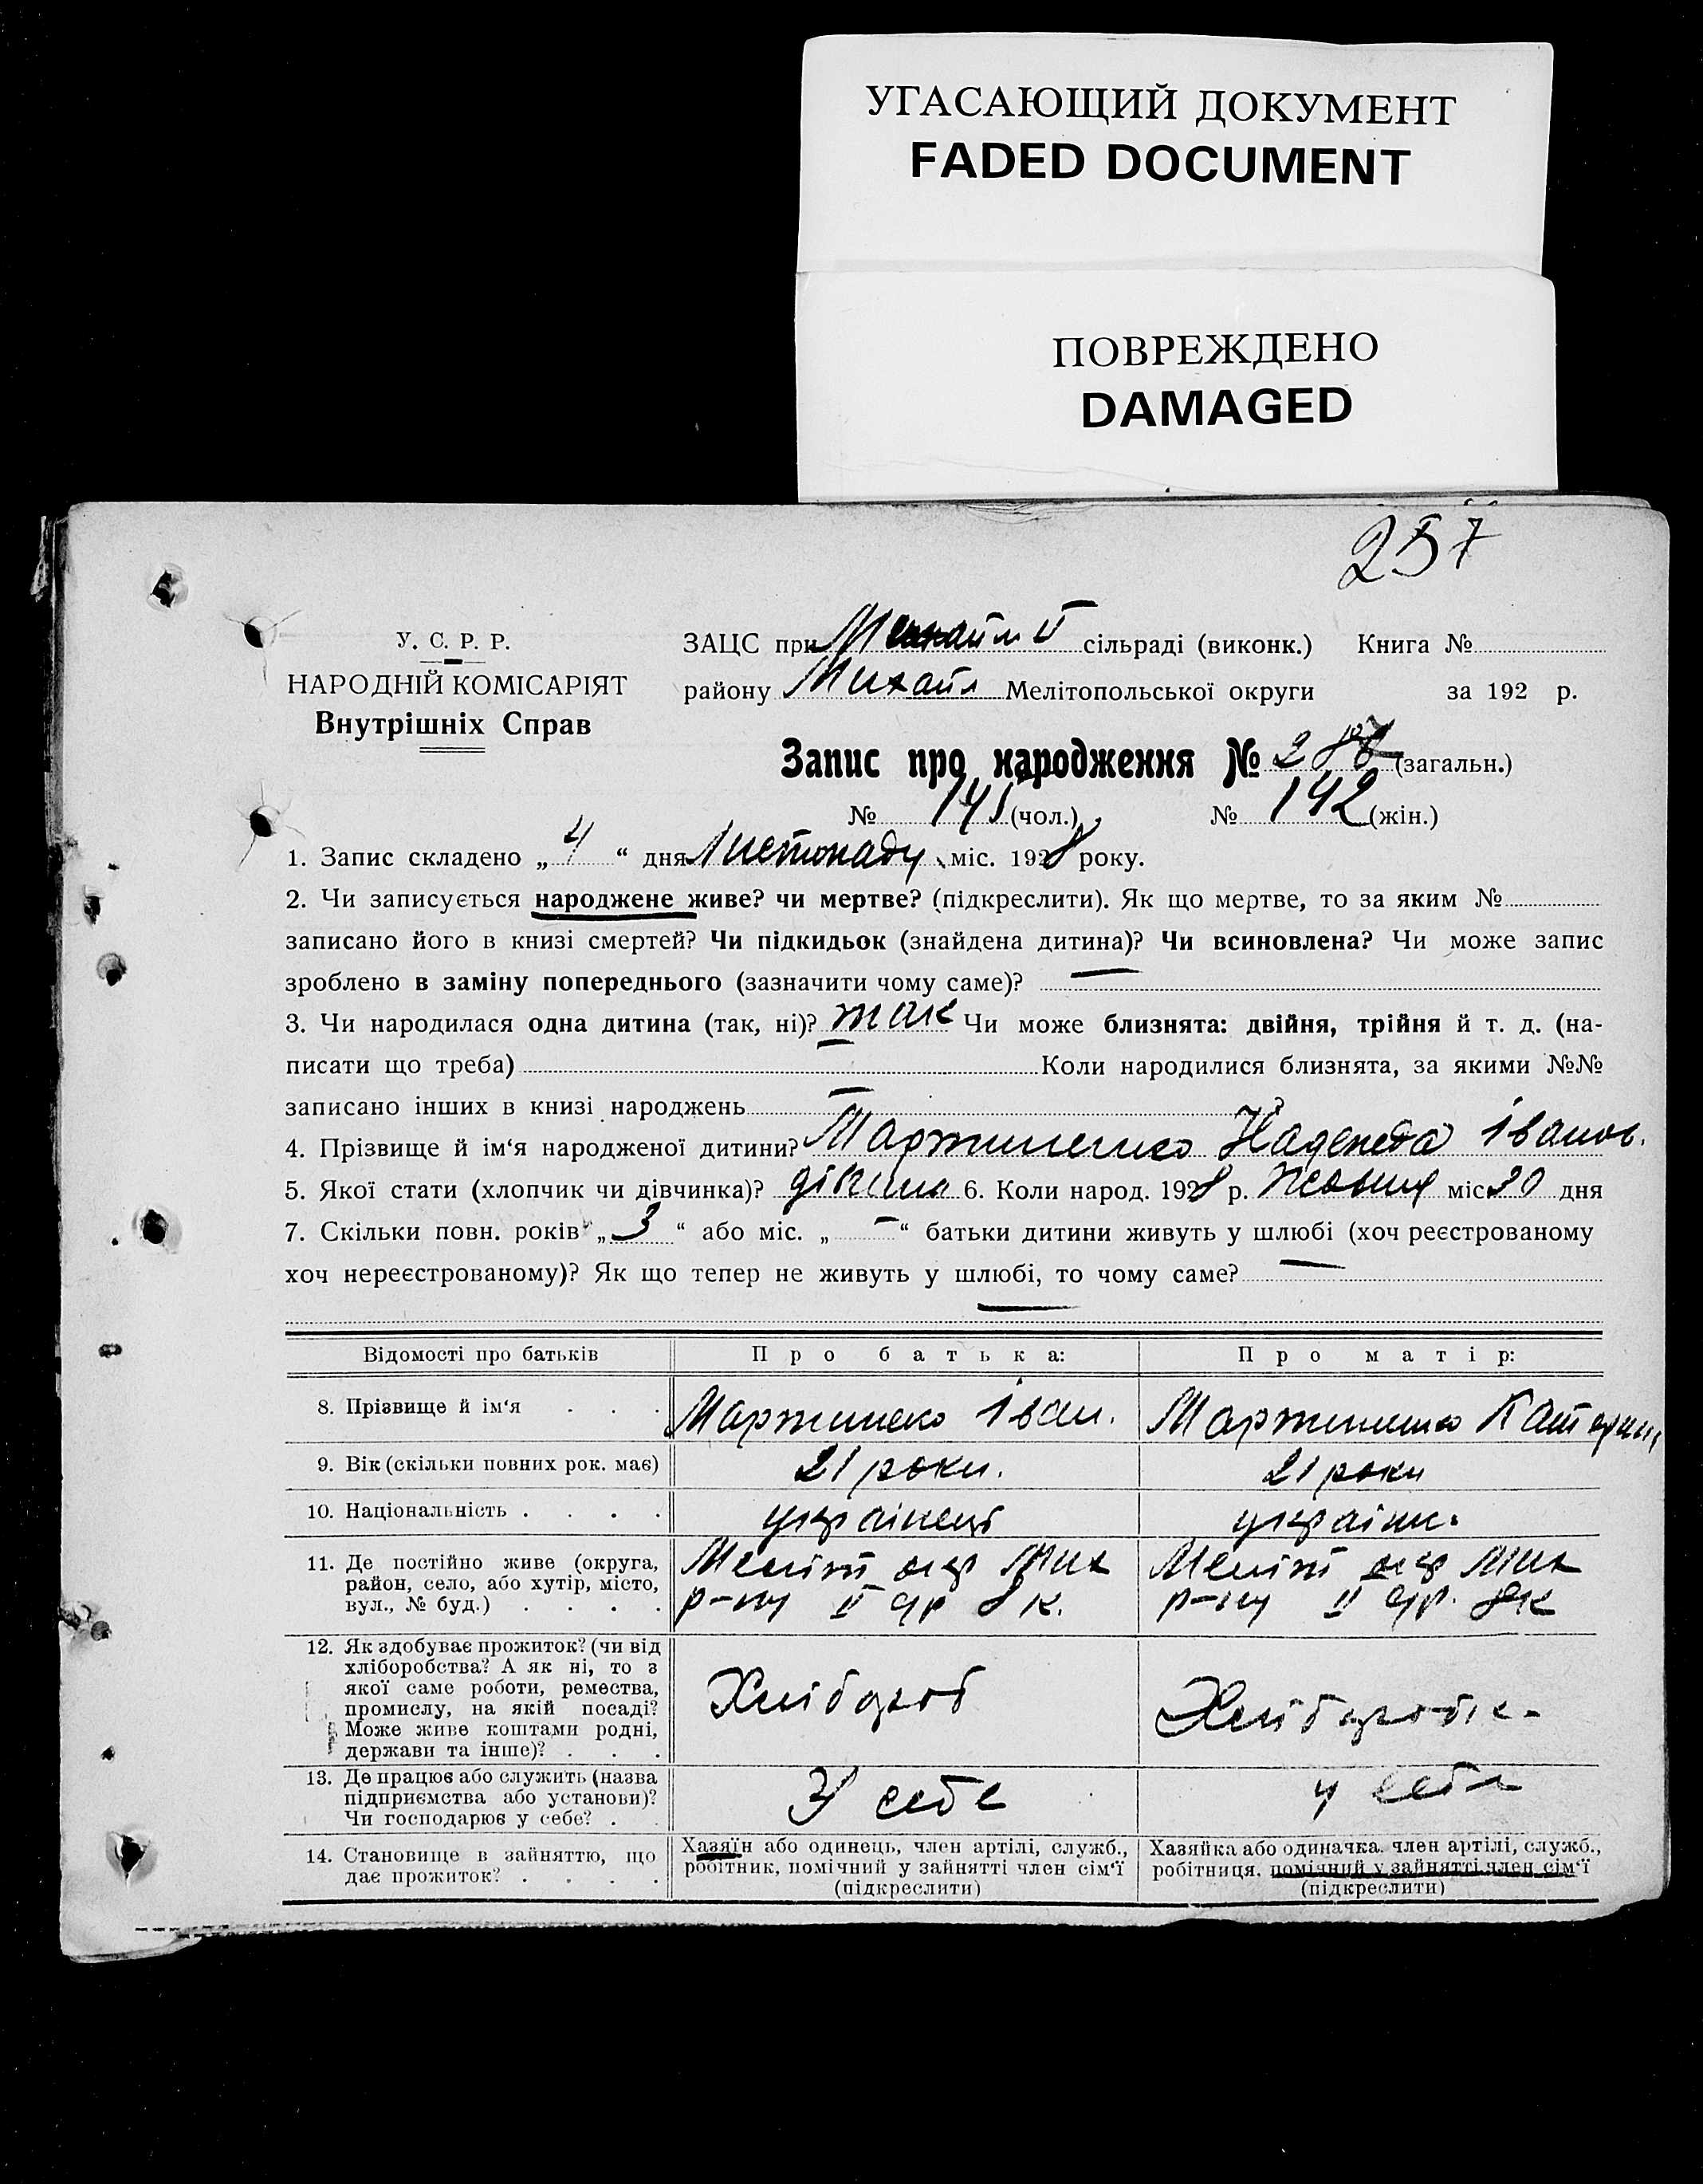 УГАСАЮЩИЙ ДОКУМЕНТ
FADED DOCUMENT
ПОВРЕЖДЕНО
DAMAGED
257
У. С. Р. Р.
НАРОДНІЙ КОМІСАРІЯТ
Внутрішніх Справ
ЗАЦС при Михайл II сільраді (виконк.) Книга №
району Михайл Мелітопольської округи за 192 р.
Запис про народження № 2 (загальн.)
№ 141 (чол.) № 142 (жін.)
1. Запис складено „ 4 “ дня Листопаду міс. 1928 року.
2. Чи записується народжене живе? чи мертве? (підкреслити). Як що мертве, то за яким №
записано його в книзі смертей? Чи підкидьок (знайдена дитина)? Чи всиновлена? Чи може запис
зроблено в заміну попереднього (зазначити чому саме)? —
3. Чи народилася одна дитина (так, ні)? так Чи може близнята: двійня, трійня й т. д. (на-
писати що треба) — Коли народилися близнята, за якими №№
записано інших в книзі народжень — ?
4. Прізвище й ім‘я народженої дитини? Мартиненко Надежда Іванов.
5. Якої стати (хлопчик чи дівчинка)? 6. Коли народ. 1928 р. Жовтня міс 30 дня
7. Скільки повн. років „ 3 “ або міс. „ — “ батьки дитини живуть у шлюбі (хоч реєстрованому
хоч нереєстрованому)? Як що тепер не живуть у шлюбі, то чому саме? —
—
Відомості про батьків Про батька: Про матір:
8. Прізвище й ім‘я . . . Мартинеко Іван. Мартиненко Катерин
9. Вік (скільки повних рок. має) 21 роки. 21 роки
10. Національність . . . . українець україн.
11. Де постійно живе (округа,
район, село, або хутір, місто,
вул., № буд.) . . . .
Меліт окр Мих
р-ну II
Меліт окр Мих
р-ну II
12. Як здобуває прожиток? (чи від
хліборобства? А як ні, то з
якої саме роботи, ремества,
промислу, на якій посаді?
Може живе коштами родні,
держави та інше)? . . .
Хлібороб
Хлібороб.
13. Де працює або служить (назва
підприємства або установи)?
Чи господарює у себе? .
У себе
у себе
14. Становище в зайняттю, що
дає прожиток? . . . .
Хазяїн або одинець, член артілі, служб.,
робітник, помічний у зайнятті член сім‘ї
(підкреслити)
Хазяйка або одиначка. член артілі, служб.,
робітниця. помічний у зайнятті член сім‘ї
(підкреслити)